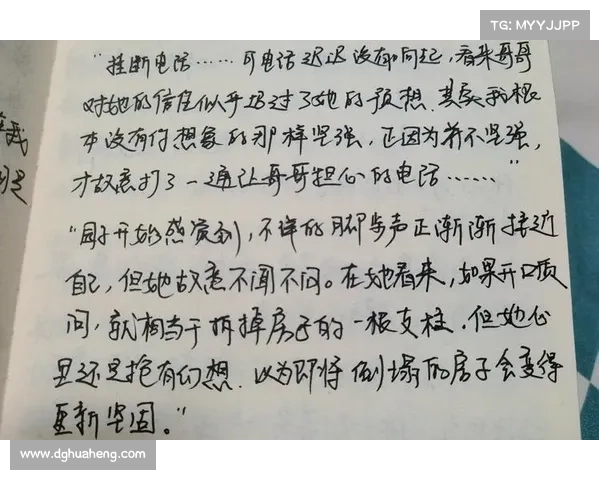 TG: MYYJJPP
"挂断电话……可电话迟迟没有响起，看来哥哥
对她的信任似乎超过了她的预想.其实我根
本没有你想象的那样坚强，正因为并不坚强，
才故意打了一通让哥哥担心的电话……"
"园子开始感觉到，不详的脚步声正渐渐接近
自己，但她故意不闻不问。在她看来，如果开口质
问，就相当于拆掉房子的一根支柱.但她心
里还是抱有幻想.以为即将倒塌的房子会变得
更新坚固。"
www.dghuaheng.com